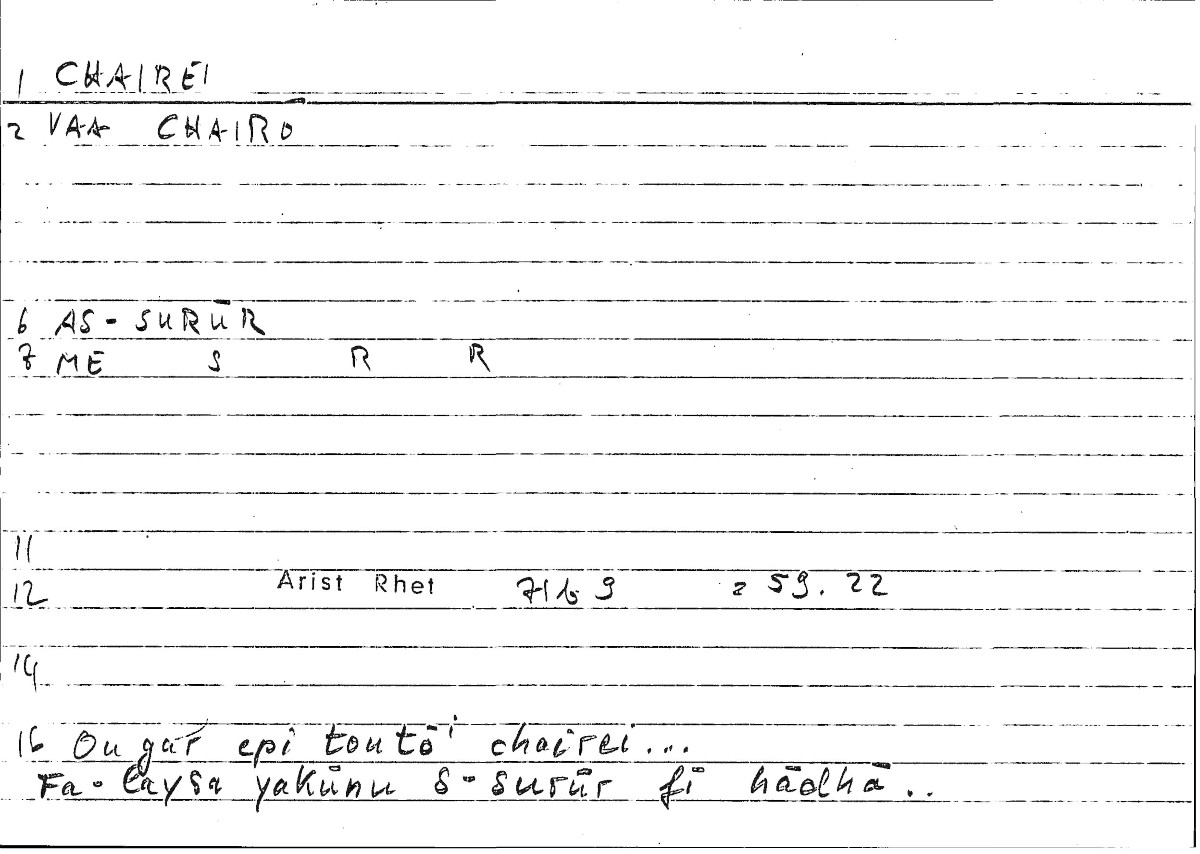 1 CHAIREI
2 VAA CHAIRO
6 AS-SURŪR
7 ME S R R
11
12 Arist Rhet 71b9 = 59.22
14
16 Ou gár epi toutō chairei...
Fa-laysa yakūnu s-surūr fī hādhā..